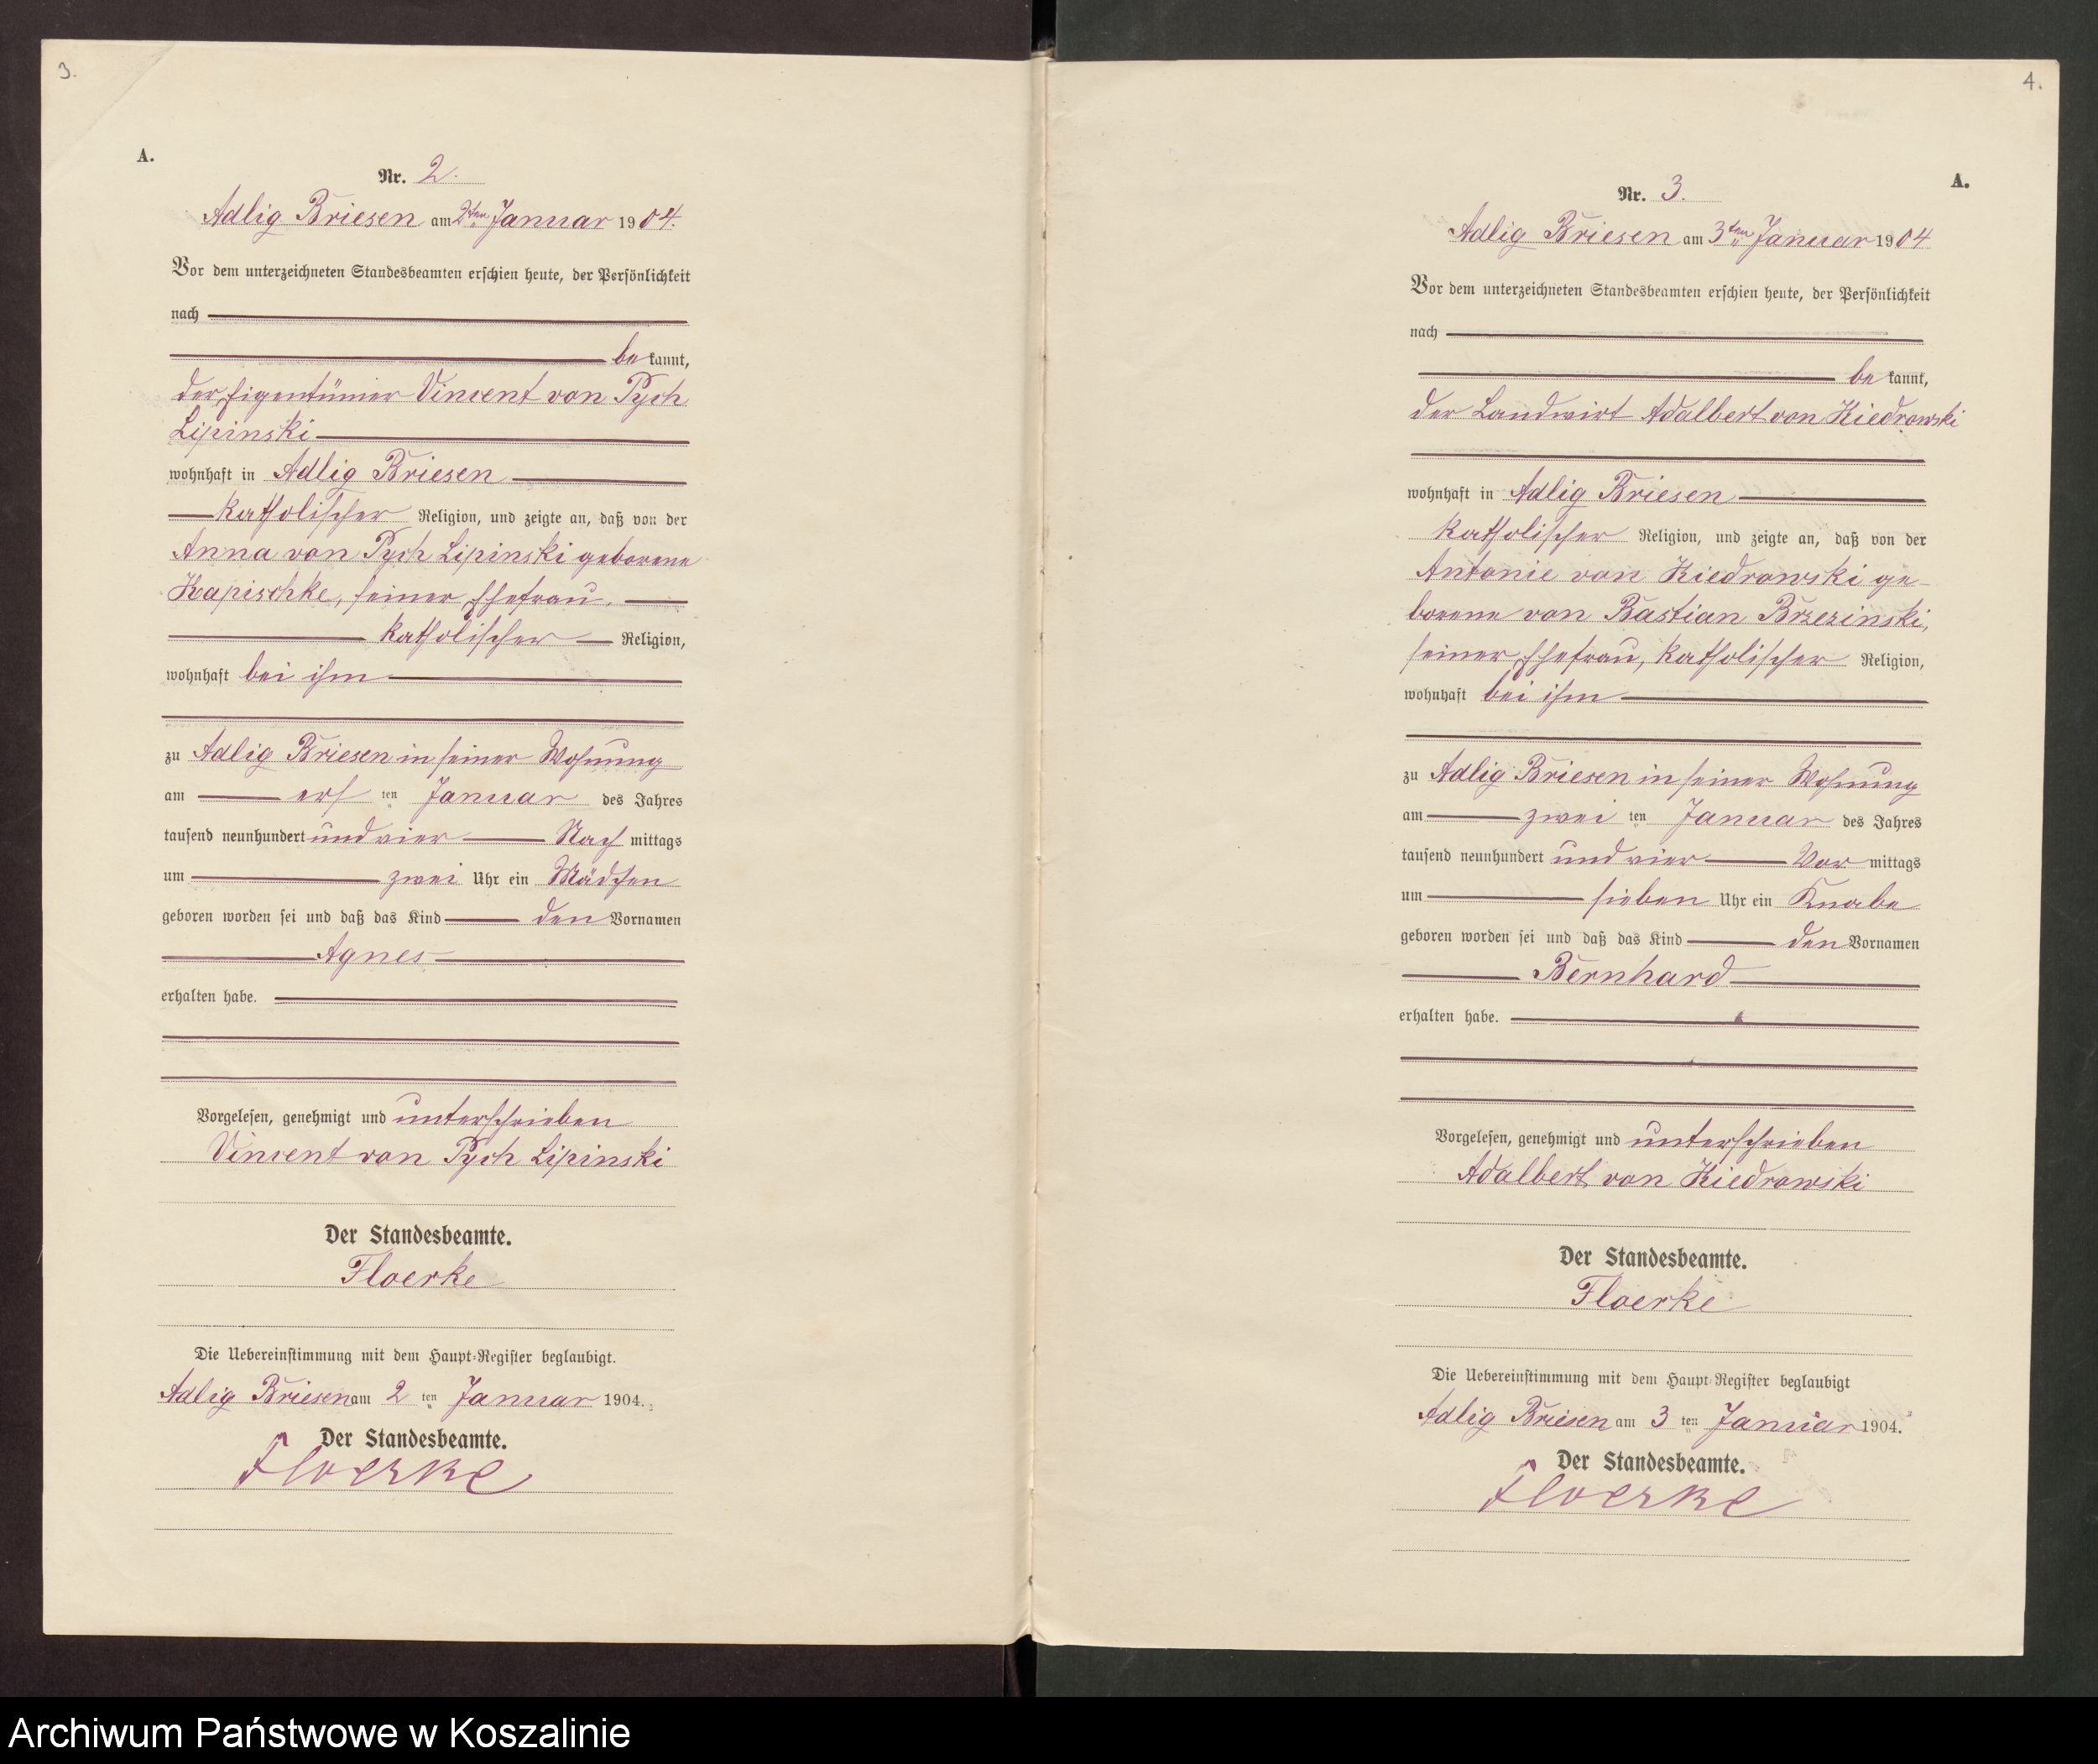 3.
A.
Nr. 2.
Adlig Briesen am 2ten Januar 1904.
Vor dem unterzeichneten Standesbeamten erschien heute, der Persönlichkeit
nach
be kannt,
der Eigentümer Vincent von Pych
Lipinski
wohnhaft in Adlig Briesen
katholischer Religion, und zeigte an, daß von der
Anna von Pych Lipinski geborene
Kapischke, seiner Ehefrau,
katholischer Religion,
wohnhaft bei ihm
zu Adlig Briesen in seiner Wohnung
am ers ten Januar des Jahres
tausend neunhundert und vier Nach mittags
um zwei Uhr ein Mädchen
geboren worden sei und daß das Kind den Vornamen
Agnes
erhalten habe.
Vorgelesen, genehmigt und unterschrieben
Vincent von Pych Lipinski
Der Standesbeamte.
Floerke
Die Uebereinstimmung mit dem Haupt-Register beglaubigt.
Adlig Briesen am 2 ten Januar 1904.
Der Standesbeamte.
Floerke
4.
A.
Nr. 3.
Adlig Briesen am 3ten Januar 1904
Vor dem unterzeichneten Standesbeamten erschien heute, der Persönlichkeit
nach
be kannt,
der Landwirt Adalbert von Kiedrowski
wohnhaft in Adlig Briesen
katholischer Religion, und zeigte an, daß von der
Antonie von Kiedrowski ge-
borene von Bastian Brzezinski,
seiner Ehefrau, katholischer Religion,
wohnhaft bei ihm
zu Adlig Briesen in seiner Wohnung
am zwei ten Januar des Jahres
tausend neunhundert und vier Vor mittags
um sieben Uhr ein Knabe
geboren worden sei und daß das Kind den Vornamen
Bernhard
erhalten habe.
Vorgelesen, genehmigt und unterschrieben
Adalbert von Kiedrowski
Der Standesbeamte.
Floerke
Die Uebereinstimmung mit dem Haupt-Register beglaubigt
Adlig Briesen am 3 ten Januar 1904.
Der Standesbeamte.
Floerke
Archiwum Państwowe w Koszalinie